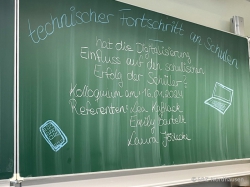 technischer Fortschritt an Schulen
hat die Digitalisierung
Einfluss auf den schulischen
Erfolg der Schüler?
Kolloquium am 16.01.2024
Referenten: Lea
Emily Bartelt
Laura